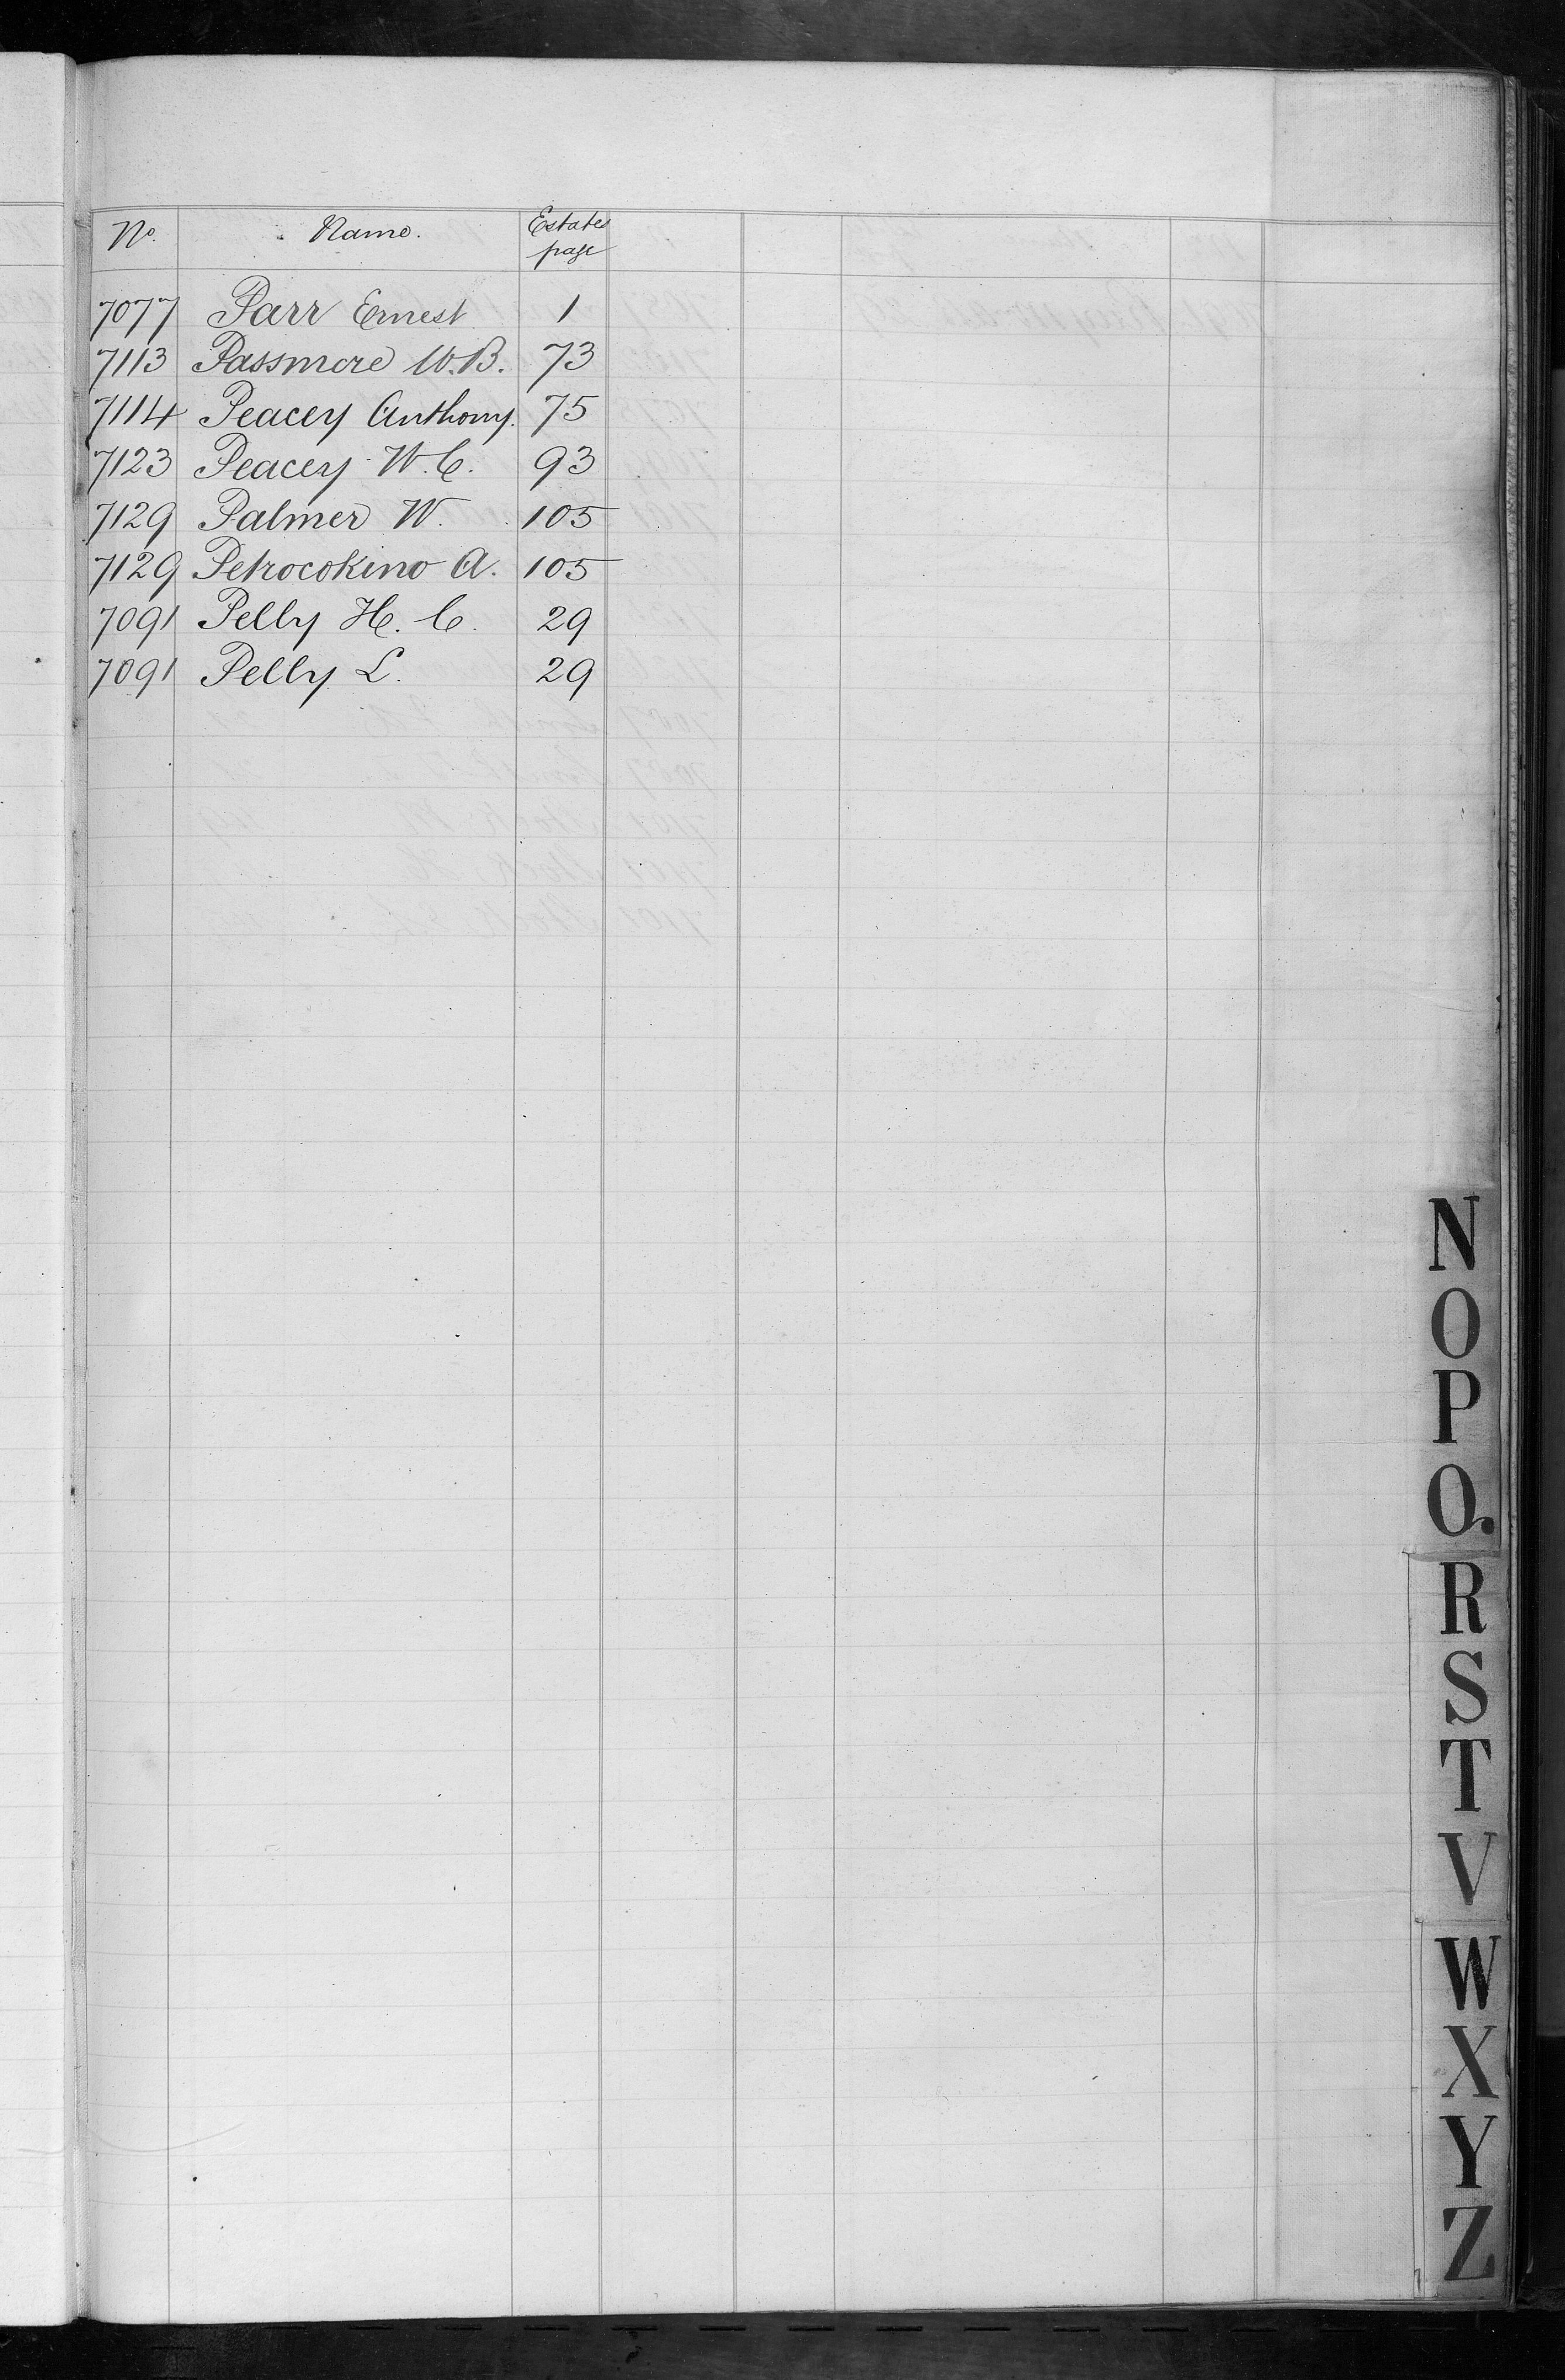 No. Name. Estates page
7077 Parr Ernest 1
7113 Passmore W.B. 73
7114 Peacey Anthony. 75
7123 Peacey W.C. 93
7129 Palmer W. 105
7129 Petrocokino A. 105
7091 Pelly H. C. 29
7091 Pelly L. 29
N
O
P
Q.
R
S
T
V
W
X
Y
Z